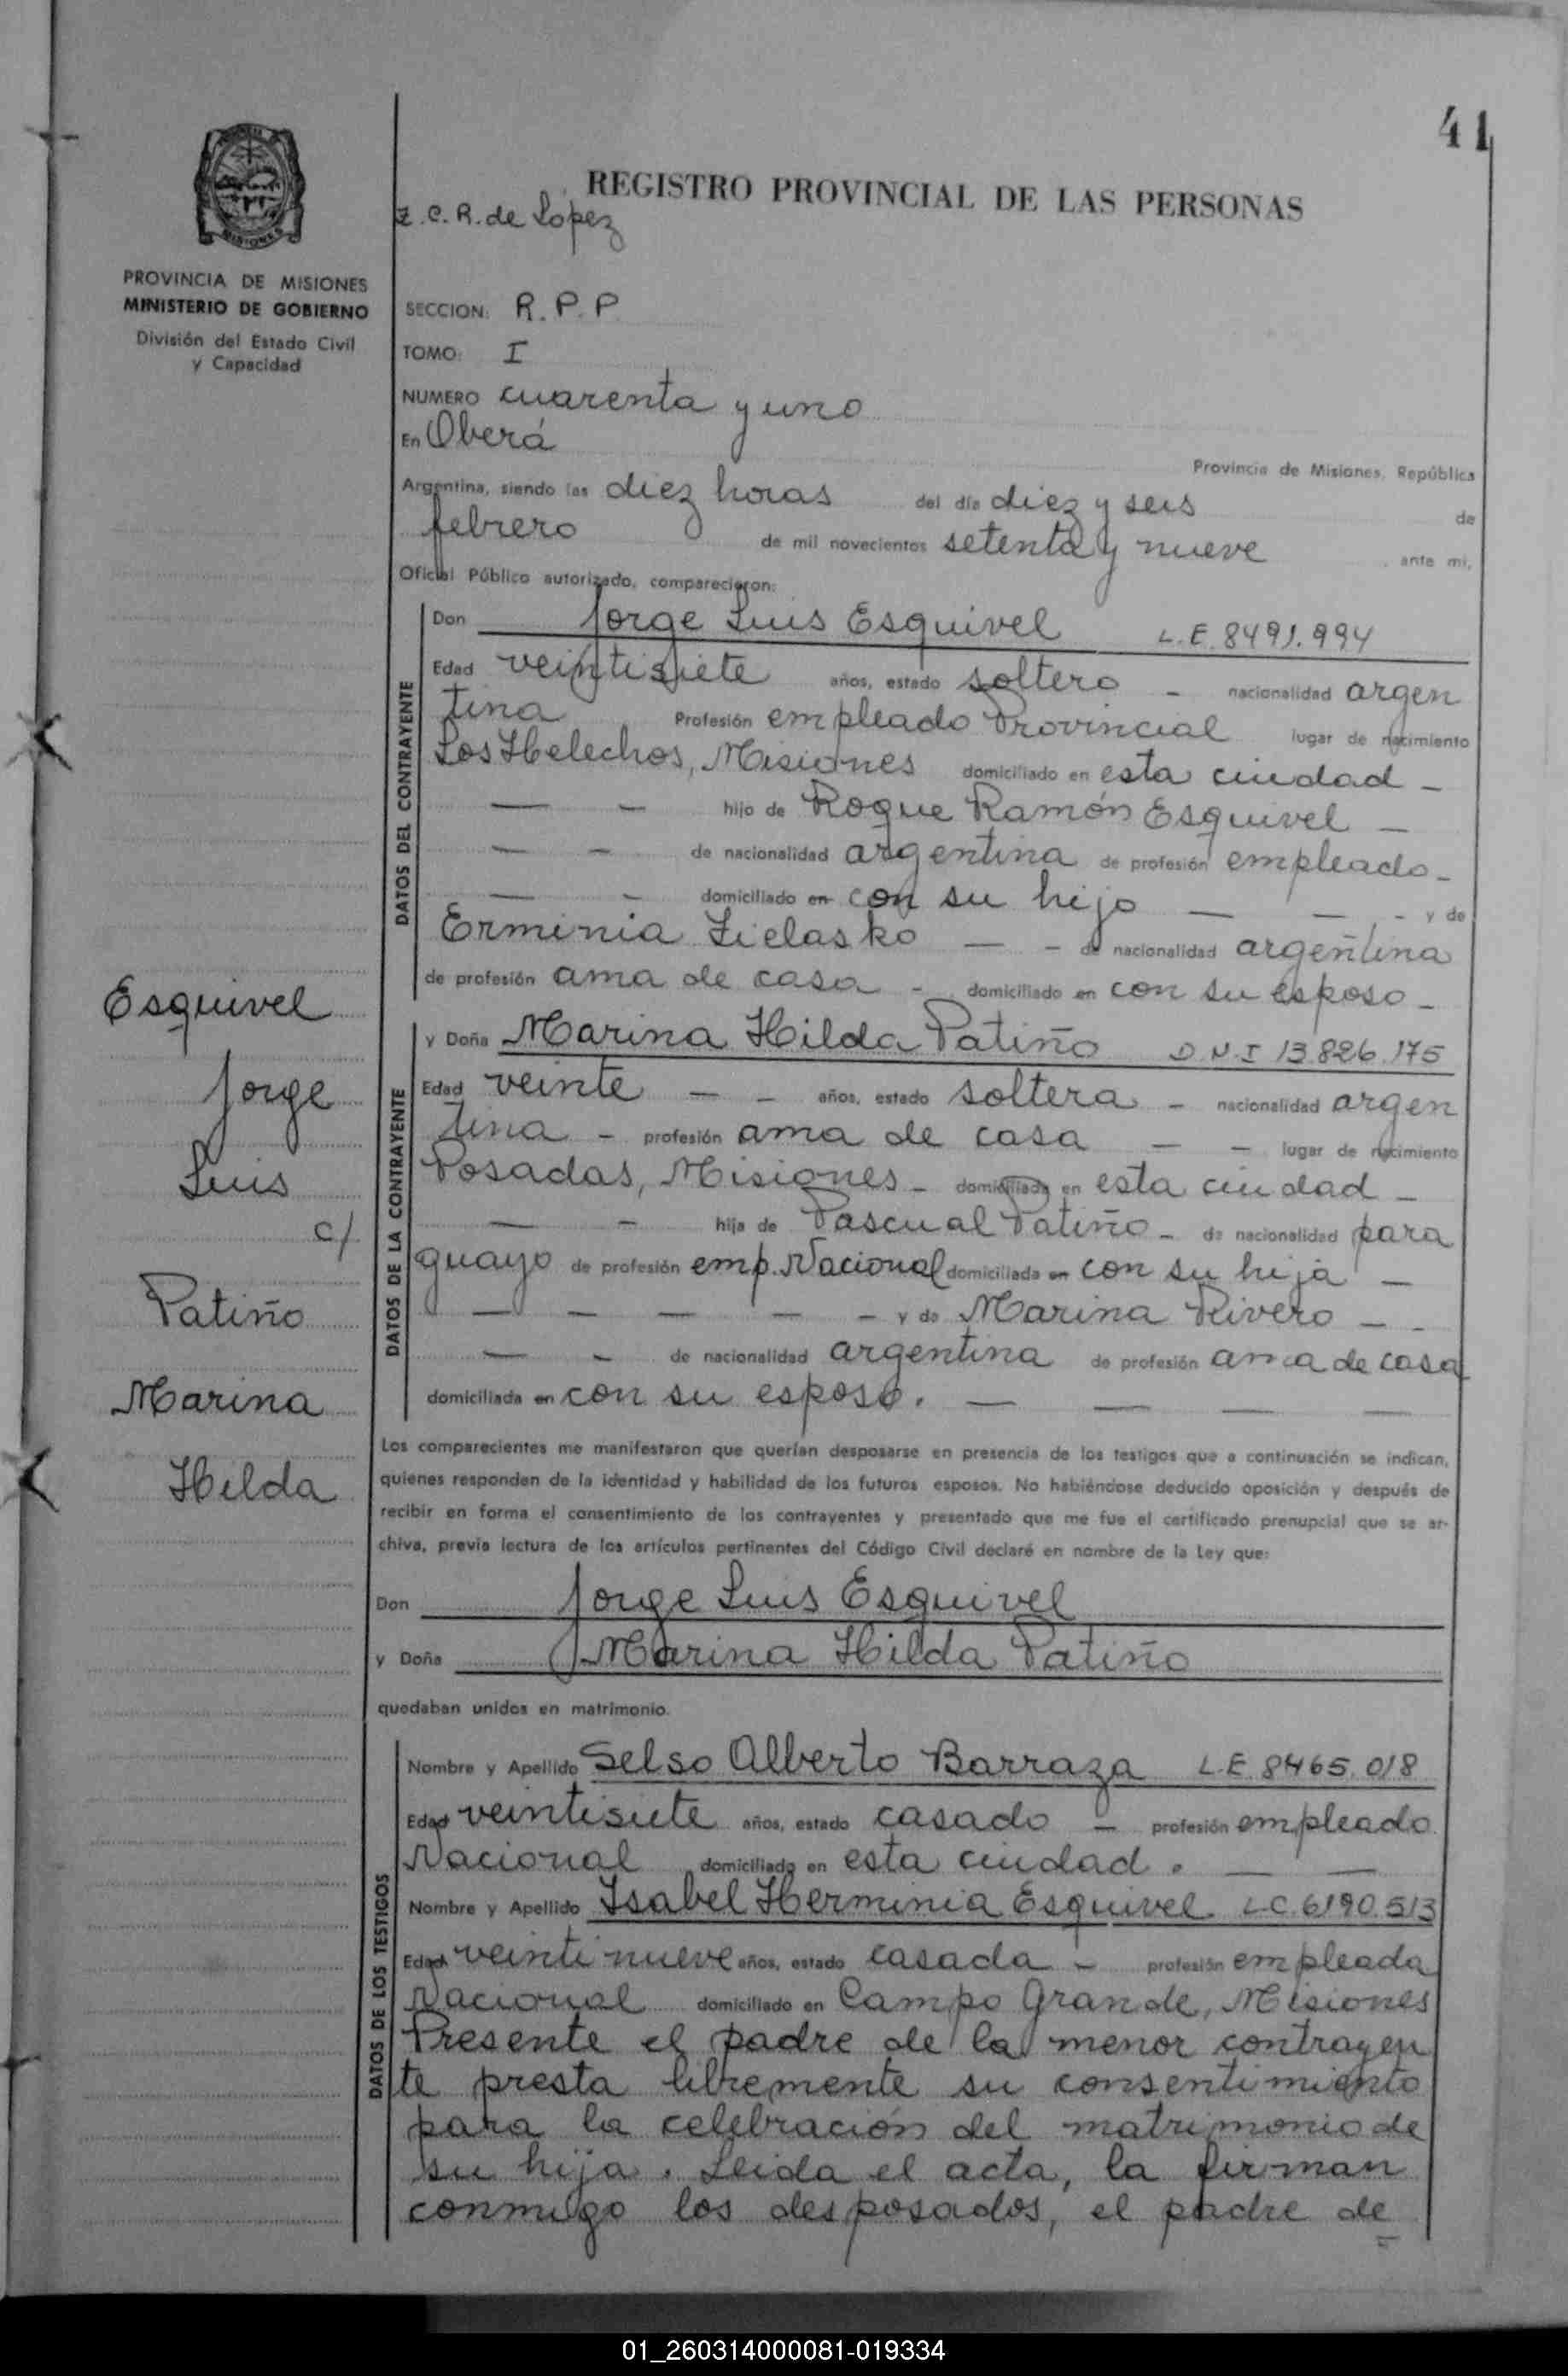 41
REGISTRO PROVINCIAL DE LAS PERSONAS
Z.C.R. de Lopez
MISIONES
PROVINCIA DE MISIONES
MINISTERIO DE GOBIERNO
División del Estado Civil
y Capacidad
SECCION: R.P.P.
TOMO: I
NUMERO cuarenta y uno
En Oberá
Provincia de Misiones, República
Argentina, siendo las diez horas del día diez y seis de
febrero de mil novecientos setenta y nueve ante mi,
Oficial Público autorizado, comparecieron:
DATOS DEL CONTRAYENTE
Don Jorge Luis Esquivel L.E. 8491.994
Edad veintisiete años, estado soltero - nacionalidad argen
tina Profesión empleado Provincial lugar de nacimiento
Los Helechos, Misiones domiciliado en esta ciudad -
— - hijo de Roque Ramón Esquivel —
— - de nacionalidad argentina de profesión empleado -
— - domiciliado en con su hijo — — - y de
Erminia Zielasko — - de nacionalidad argentina
de profesión ama de casa - domiciliado en con su esposo -
DATOS DE LA CONTRAYENTE
y Doña Marina Hilda Patiño D.N.I 13.826.175
Edad veinte — - años, estado soltera - nacionalidad argen
tina - profesión ama de casa — - lugar de nacimiento
Posadas, Misiones - domiciliada en esta ciudad -
— - hija de Pascual Patiño - de nacionalidad para
guayo de profesión emp. Nacional domiciliada en con su hija —
— — — — - y de Marina Rivero — -
— - de nacionalidad argentina de profesión ama de casa
domiciliada en con su esposo. — — — —
Esquivel
Jorge
Luis
c/
Patiño
Marina
Hilda
Los comparecientes me manifestaron que querían desposarse en presencia de los testigos que a continuación se indican,
quienes responden de la identidad y habilidad de los futuros esposos. No habiéndose deducido oposición y después de
recibir en forma el consentimiento de los contrayentes y presentado que me fue el certificado prenupcial que se ar-
chiva, previa lectura de los artículos pertinentes del Código Civil declaré en nombre de la Ley que:
Don Jorge Luis Esquivel
y Doña Marina Hilda Patiño
quedaban unidos en matrimonio.
DATOS DE LOS TESTIGOS
Nombre y Apellido Selso Alberto Barraza L.E. 8465.018
Edad veintisiete años, estado casado - profesión empleado
Nacional domiciliado en esta ciudad. — —
Nombre y Apellido Isabel Herminia Esquivel L.C. 6190.513
Edad veintinueve años, estado casada - profesión empleada
Nacional domiciliado en Campo Grande, Misiones
Presente el padre de la menor contrayen
te presta libremente su consentimiento
para la celebración del matrimonio de
su hija. Leida el acta, la firman
conmigo los desposados, el padre de
01_260314000081-019334